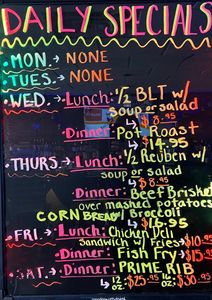 DAILY SPECIALS
• MON. → NONE
• TUES. → NONE
• WED. → Lunch: 1/2 BLT w/
soup or salad
↳ $8.95
Dinner: Pot Roast
↳ $14.95
• THURS. → Lunch: 1/2 Reuben w/
soup or salad
↳ $8.95
Dinner: Beef Brisket
over mashed potatoes
CORNBREAD / Broccoli
↳ $15.95
• FRI. → Lunch: Chicken Deli
Sandwich w/ Fries → $10.95
Dinner: Fish Fry → $15.95
• SAT. → Dinner: PRIME RIB
↳ 12 oz. $25.95 16 oz. $30.95